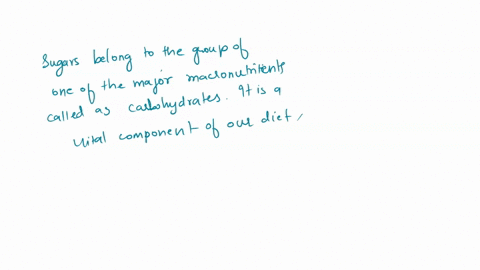 Sugars belong to the group of
one of the major macronutrients
called as carbohydrates. It is a
vital component of our diet,